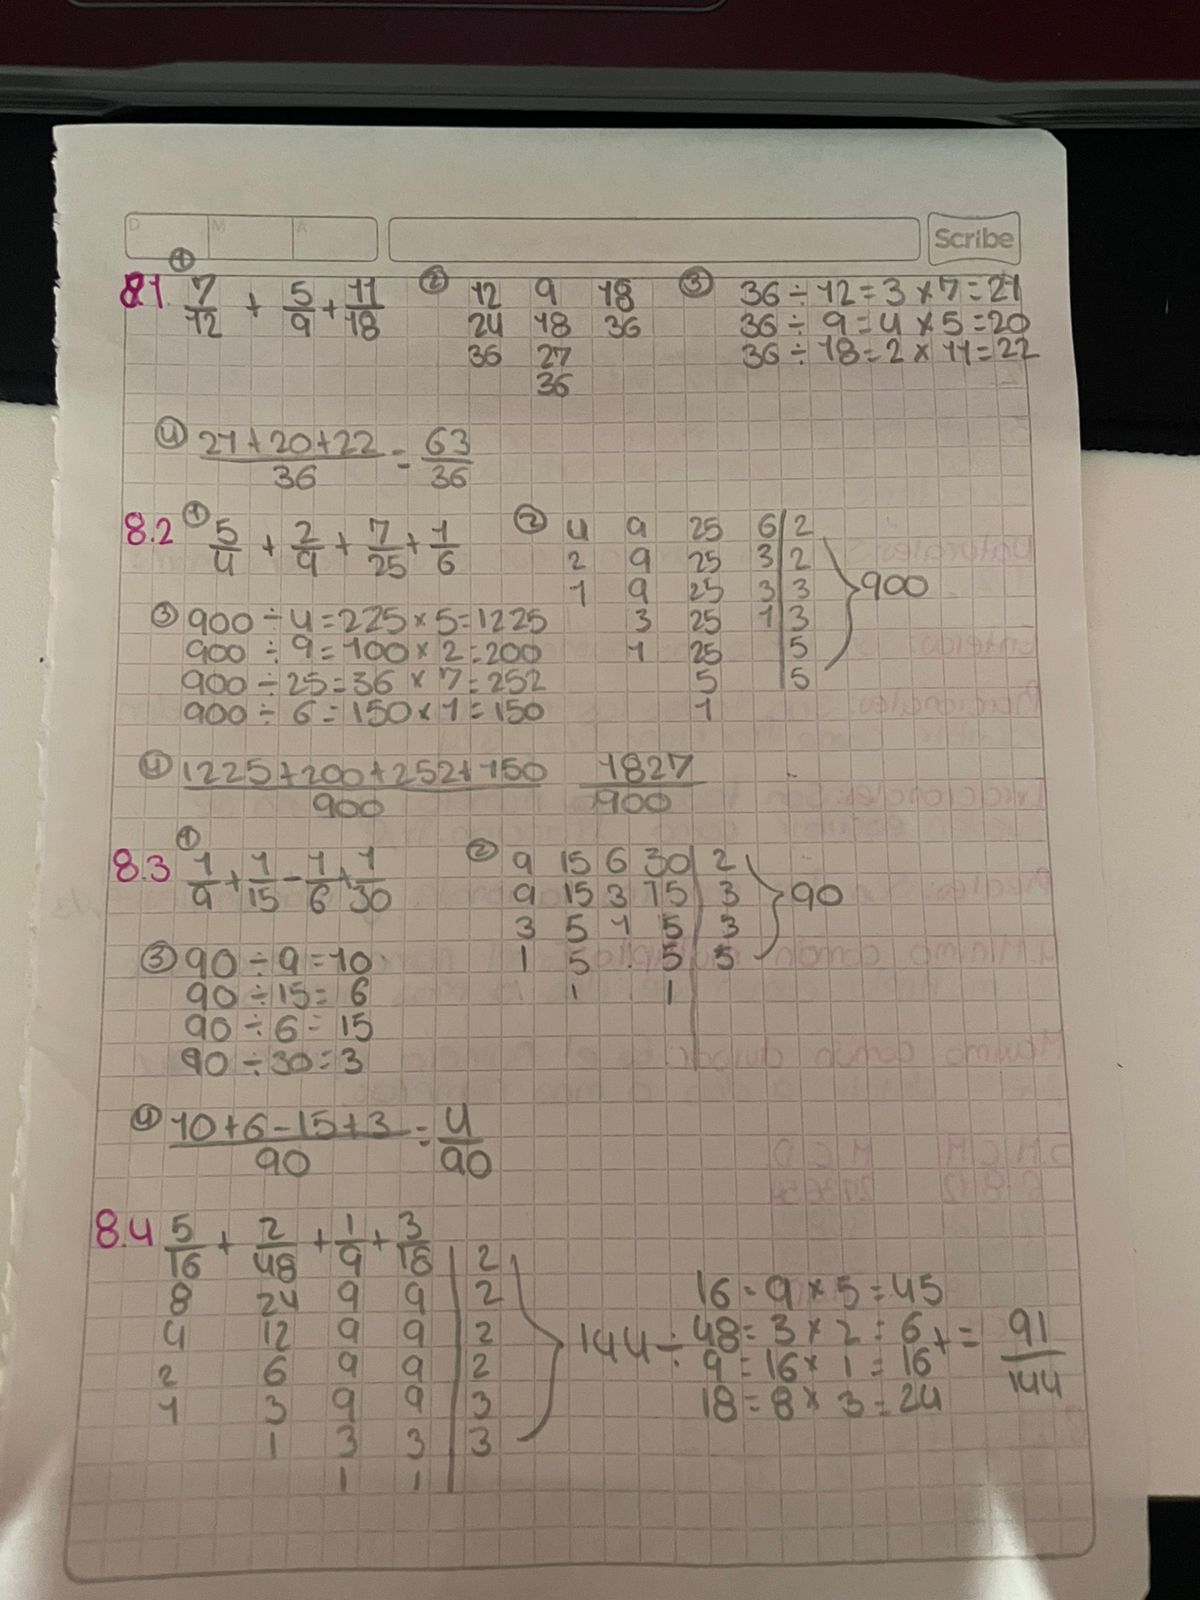 D M A Scribe
8.1. ① 7/12 + 5/9 + 11/18 ② 12 9 18 ③ 36 ÷ 12 = 3 × 7 = 21
24 18 36 36 ÷ 9 = 4 × 5 = 20
36 27 36 ÷ 18 = 2 × 11 = 22
36
④ 21+20+22/36 = 63/36
8.2 ① 5/4 + 2/9 + 7/25 + 1/6 ② 4 9 25 6 | 2
2 9 25 3 | 2
1 9 25 3 | 3 } 900
3 25 1 | 3
1 25 | 5
5 | 5
1
③ 900 ÷ 4 = 225 × 5 = 1225
900 ÷ 9 = 100 × 2 = 200
900 ÷ 25 = 36 × 7 = 252
900 ÷ 6 = 150 × 1 = 150
④ 1225+200+252+150/900 1827/900
8.3 ① 1/9 + 1/15 - 1/6 + 1/30 ② 9 15 6 30 | 2
9 15 3 15 | 3 } 90
3 5 1 5 | 3
1 5 5 | 5
1 1
③ 90 ÷ 9 = 10
90 ÷ 15 = 6
90 ÷ 6 = 15
90 ÷ 30 = 3
④ 10+6-15+3/90 = 4/90
8.4 5/16 + 2/48 + 1/9 + 3/18 | 2
8 24 9 9 | 2
4 12 9 9 | 2
2 6 9 9 | 2
1 3 9 9 | 3
1 3 3 | 3
1 1
144 ÷
16 = 9 × 5 = 45
48 = 3 × 2 = 6
9 = 16 × 1 = 16
18 = 8 × 3 = 24
+ = 91/144